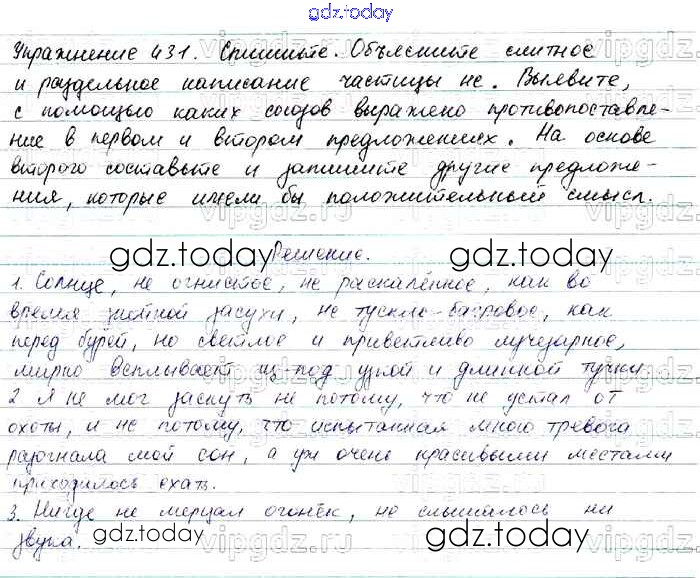 gdz.today
Упражнение 431. Спишите. Объясните слитное
и раздельное написание частицы не. Выявите,
с помощью каких союзов выражено противопоставле-
ние в первом и втором предложениях. На основе
второго составьте и запишите другие предложе-
ния, которые имели бы положительный смысл.
gdz.today Решение. gdz.today
1. Солнце, не огнистое, не раскалённое, как во
время знойной засухи, не тускло-багровое, как
перед бурей, но светлое и приветливо лучезарное,
мирно всплывает из-под узкой и длинной тучки.
2 Я не мог заснуть не потому, что не устал от
охоты, и не потому, что испытанная мною тревога
разогнала мой сон, а уж очень красивыми местами
приходилось ехать.
3. Нигде не мерцал огонёк, не слышалось ни
звука.
gdz.today gdz.today
vipgdz.ru